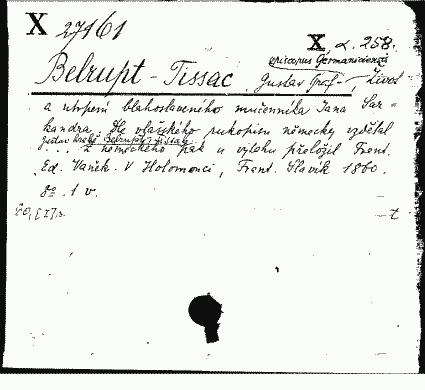 X 27161
X, d. 258.
episcopus Germanicensis
Belrupt-Tissac, Gustav Graf-, Život
a utrpení blahoslaveného mučenníka Jana Sar=
kandra. Dle vlašského rukopisu německy vzdělal
Gustav hrabě Belrupt-Tissac.
Z německého pak u výtahu přeložil Frant.
Ed. Vaněk. V Holomouci, Frant. Slavík 1860.
8º. 1 v.
t